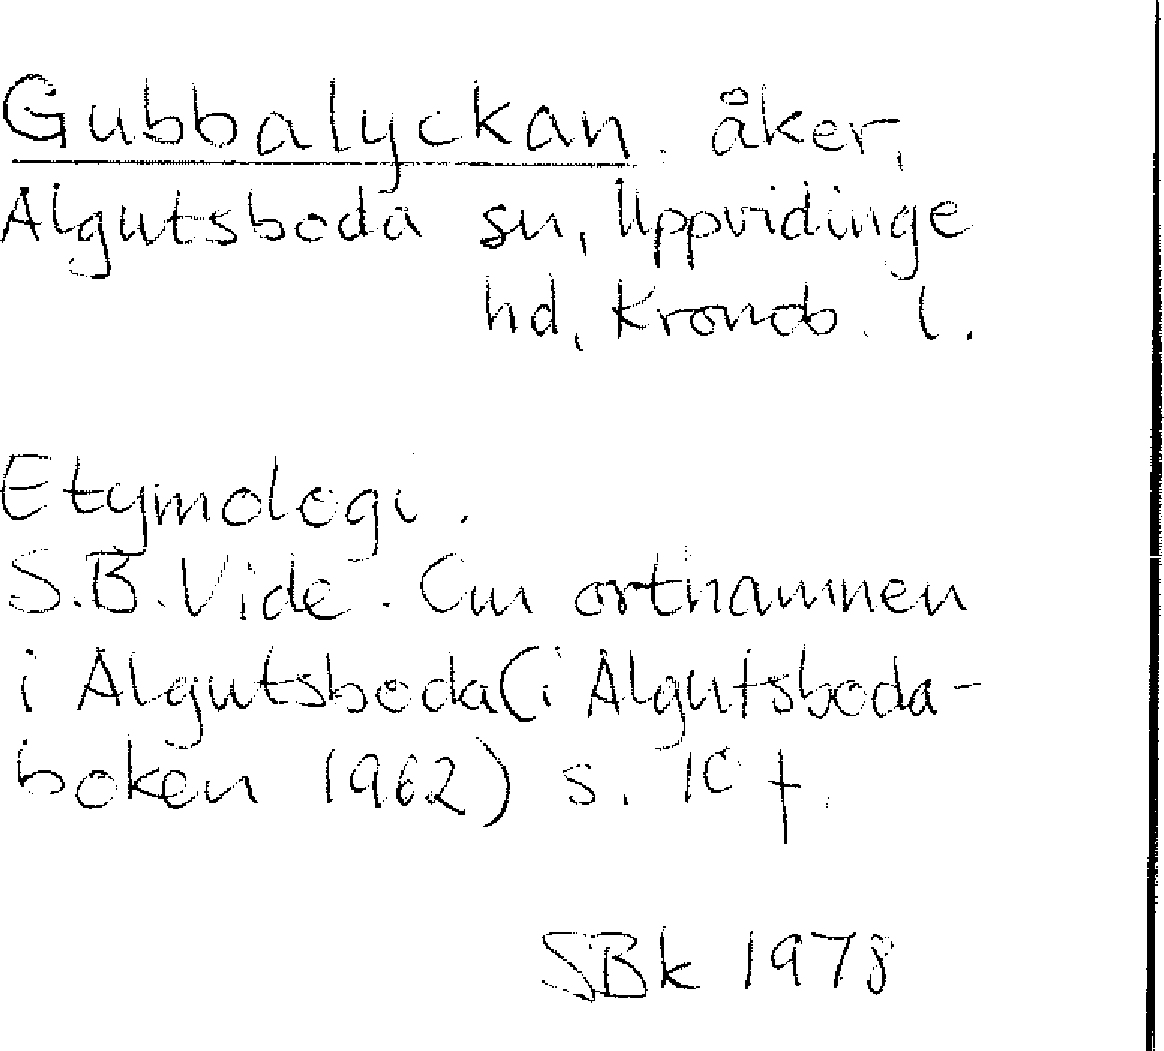 Gubbalyckan. åker,
Algutsboda sn, Uppvidinge
hd, Kronob. l.
Etymologi.
S.B. Vide. Om ortnamnen
i Algutsboda (i Algutsboda-
boken 1962) s. 10 f.
SBk 1978